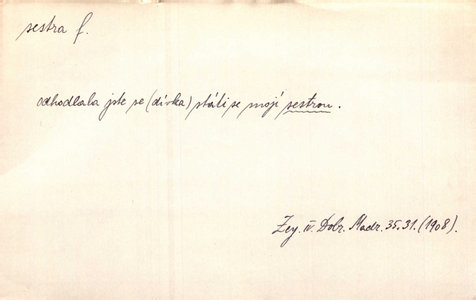 sestra f.
odhodlala jste se (dívka) státi se mojí sestrou.
Zey. IV. Dobr. Madr. 35.31. (1908).